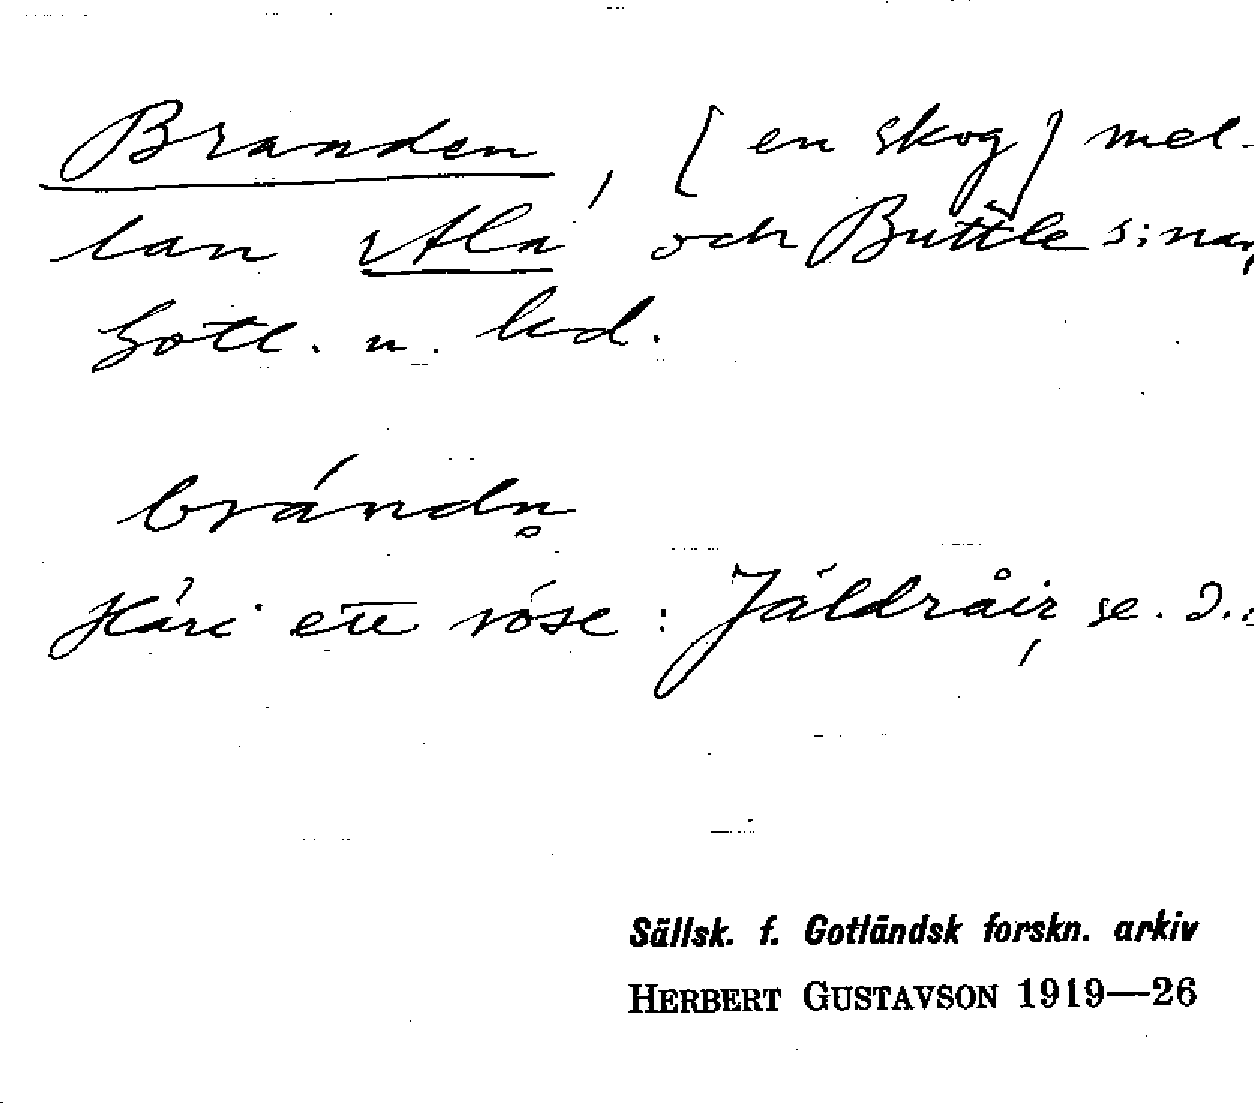 Branden, [en skog] mel-
lan Ala och Buttle s:nar,
Gotl. n. hd.
brándn̥
Häri ett röse: Jäldråir se. d.
Sällsk. f. Gotländsk forskn. arkiv
HERBERT GUSTAVSON 1919—26